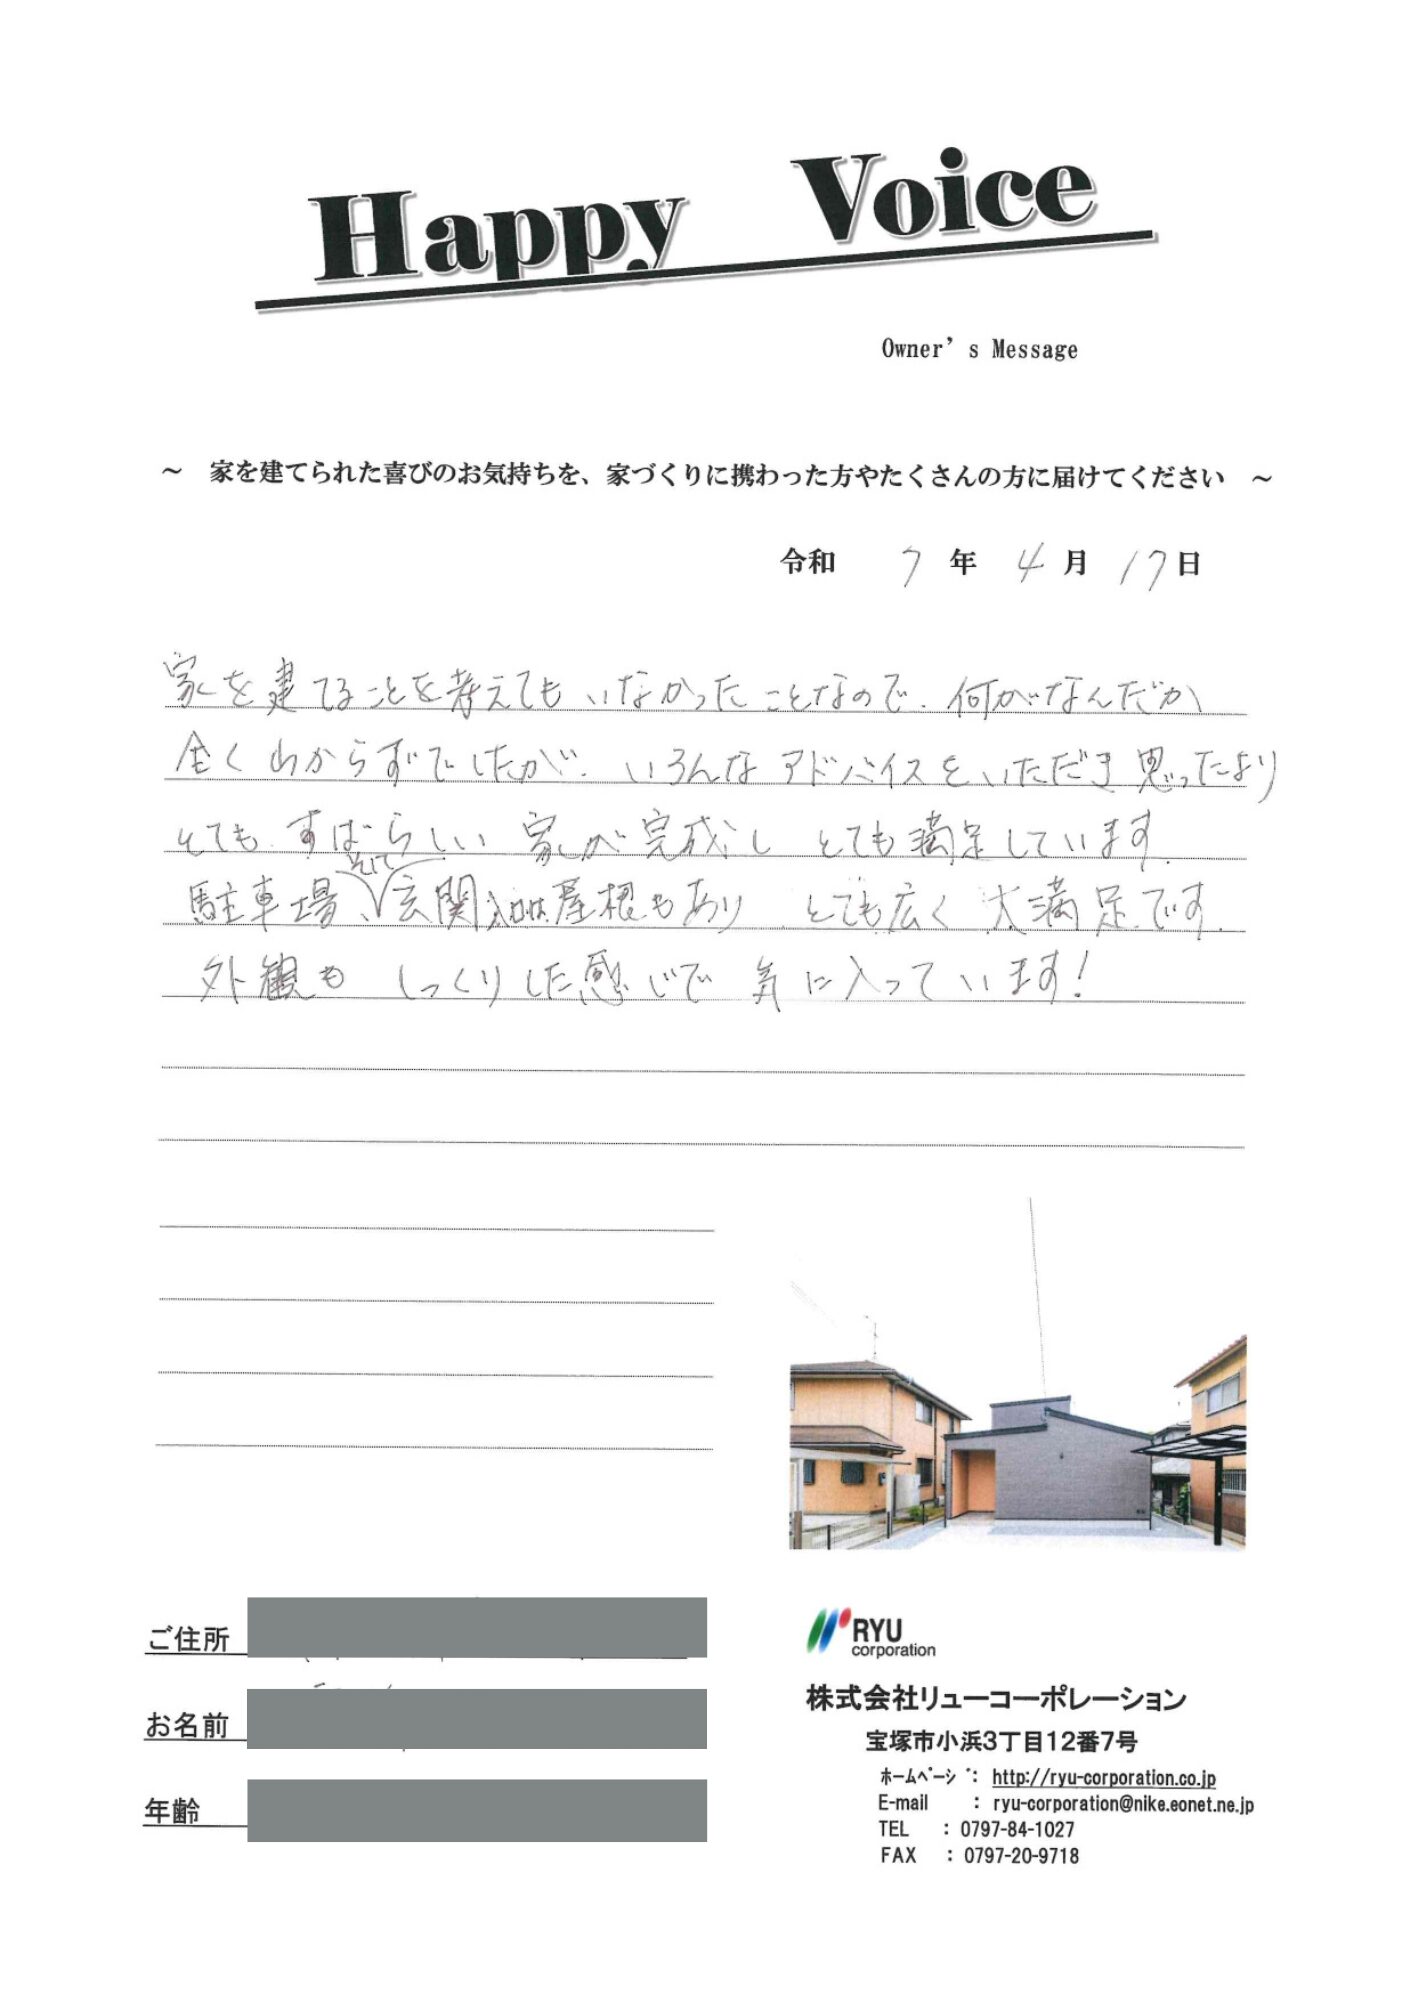 Happy Voice
Owner's Message
～ 家を建てられた喜びのお気持ちを、家づくりに携わった方やたくさんの方に届けてください ～
令和 7 年 4 月 17 日
家を建てることを考えてもいなかったことなので、何がなんだか
全くわからずでしたが、いろんなアドバイスをいただき思ったより
とても、すばらしい家が完成し とても満足しています。
駐車場、そして玄関入口は屋根もあり とても広く 大満足です。
外観も しっくりした感じで 気に入っています!
ご住所
お名前
年齢
RYU
corporation
株式会社リューコーポレーション
宝塚市小浜3丁目12番7号
ホームページ: http://ryu-corporation.co.jp
E-mail : ryu-corporation@nike.eonet.ne.jp
TEL : 0797-84-1027
FAX : 0797-20-9718